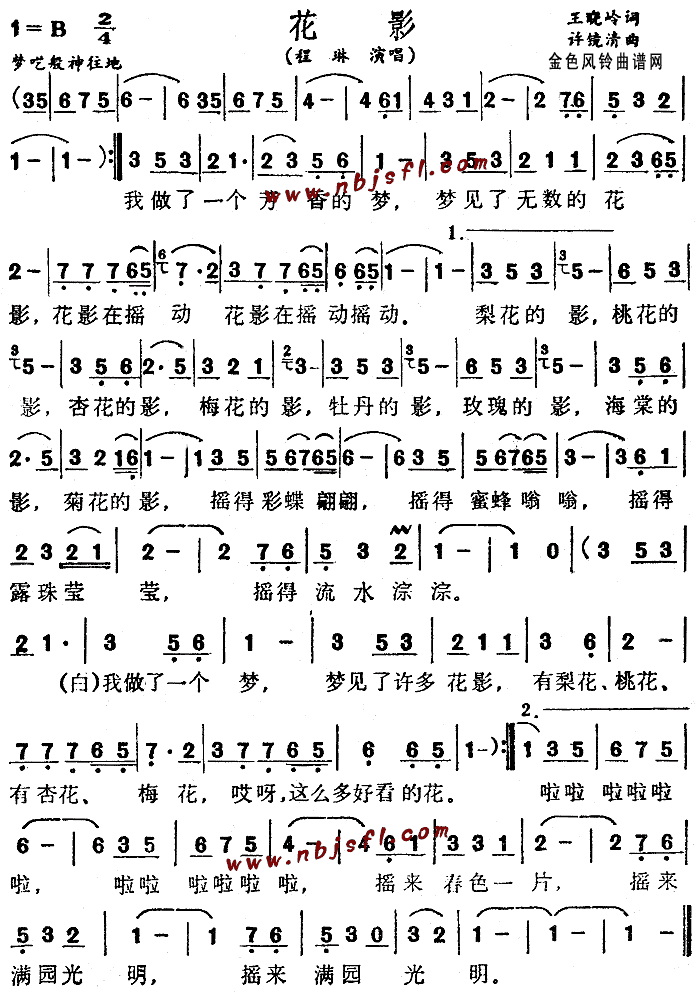 1=B 2/4 花影 王晓岭词
(程琳 演唱) 许镜清曲
梦呓般神往地 金色风铃曲谱网
(35 | 675 | 6- | 635 | 675 | 4- | 461 | 431 | 2- | 276 | 532 |
1- | 1-) :‖ 3 53 | 21· | 23 56 | 1- | 353 | 211 | 2365 |
www.nbjsfl.com
我做了一个芳香的梦, 梦见了无数的花
2- | 77 7 65 | 67·2 | 3 77 65 | 67 65 | 1- | 1- | 1. 353 | 5- | 653 |
影,花影在摇动 花影在摇动摇动。 梨花的影,桃花的
5- | 356 | 2·5 | 321 | 3- | 353 | 5- | 653 | 5- | 356 |
影,杏花的影,梅花的影,牡丹的影,玫瑰的影,海棠的
2·5 | 32 16 | 1- | 135 | 56765 | 6- | 635 | 56765 | 3- | 361 |
影,菊花的影, 摇得彩蝶翩翩, 摇得蜜蜂嗡嗡, 摇得
23 21 | 2- | 2 76 | 53 2 | 1- | 10 | (3 53 |
露珠莹莹, 摇得流水淙淙。
21· | 3 56 | 1- | 3 53 | 211 | 3 6 | 2- |
(白)我做了一个梦, 梦见了许多花影,有梨花、桃花、
777 65 | 7·2 | 377 65 | 6 6 65 | 1-) :‖ 2. 1 35 | 675 |
有杏花、 梅花,哎呀,这么多好看的花。 啦啦 啦啦啦
6- | 635 | 675 | 4- | 461 | 331 | 2- | 276 |
www.nbjsfl.com
啦, 啦啦 啦啦啦啦, 摇来春色一片, 摇来
532 | 1- | 1 76 | 53 | 530 | 32 | 1- | 1- | 1- ‖
满园光明, 摇来满园光明。